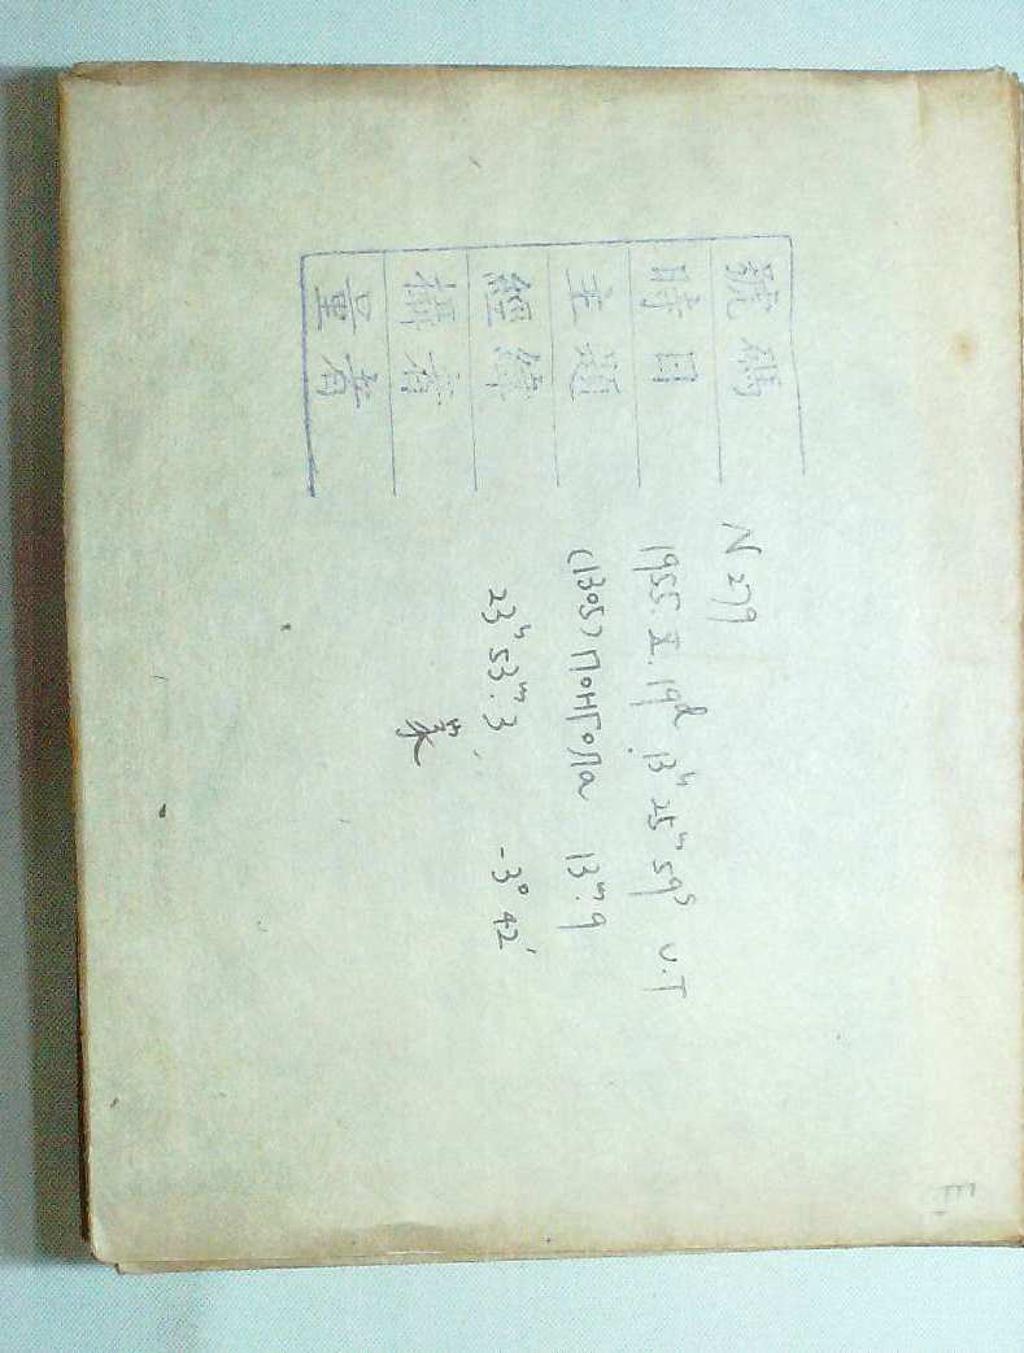 號碼 N 279
時日 1955. I. 19d 13h 25m 59s U.T
主題 (1305) ПОНГОЛа 13m.9
經緯 23h 53m.3 -3° 42'
攝者
量者